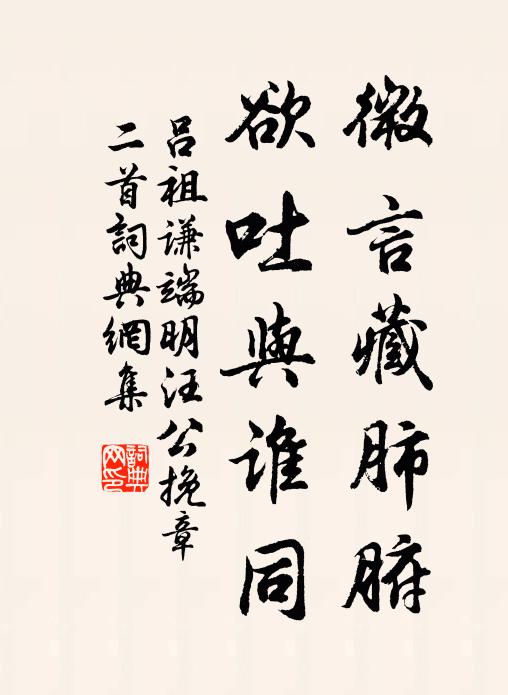 微言藏肺腑
欲吐與誰同
呂祖謙端明汪公挽章
二首詞典網集
詞典網印